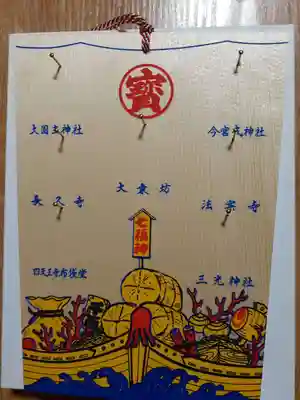 寳
大国主神社
今宮戎神社
大乗坊
長久寺
法案寺
七福神
四天王寺布袋堂
三光神社